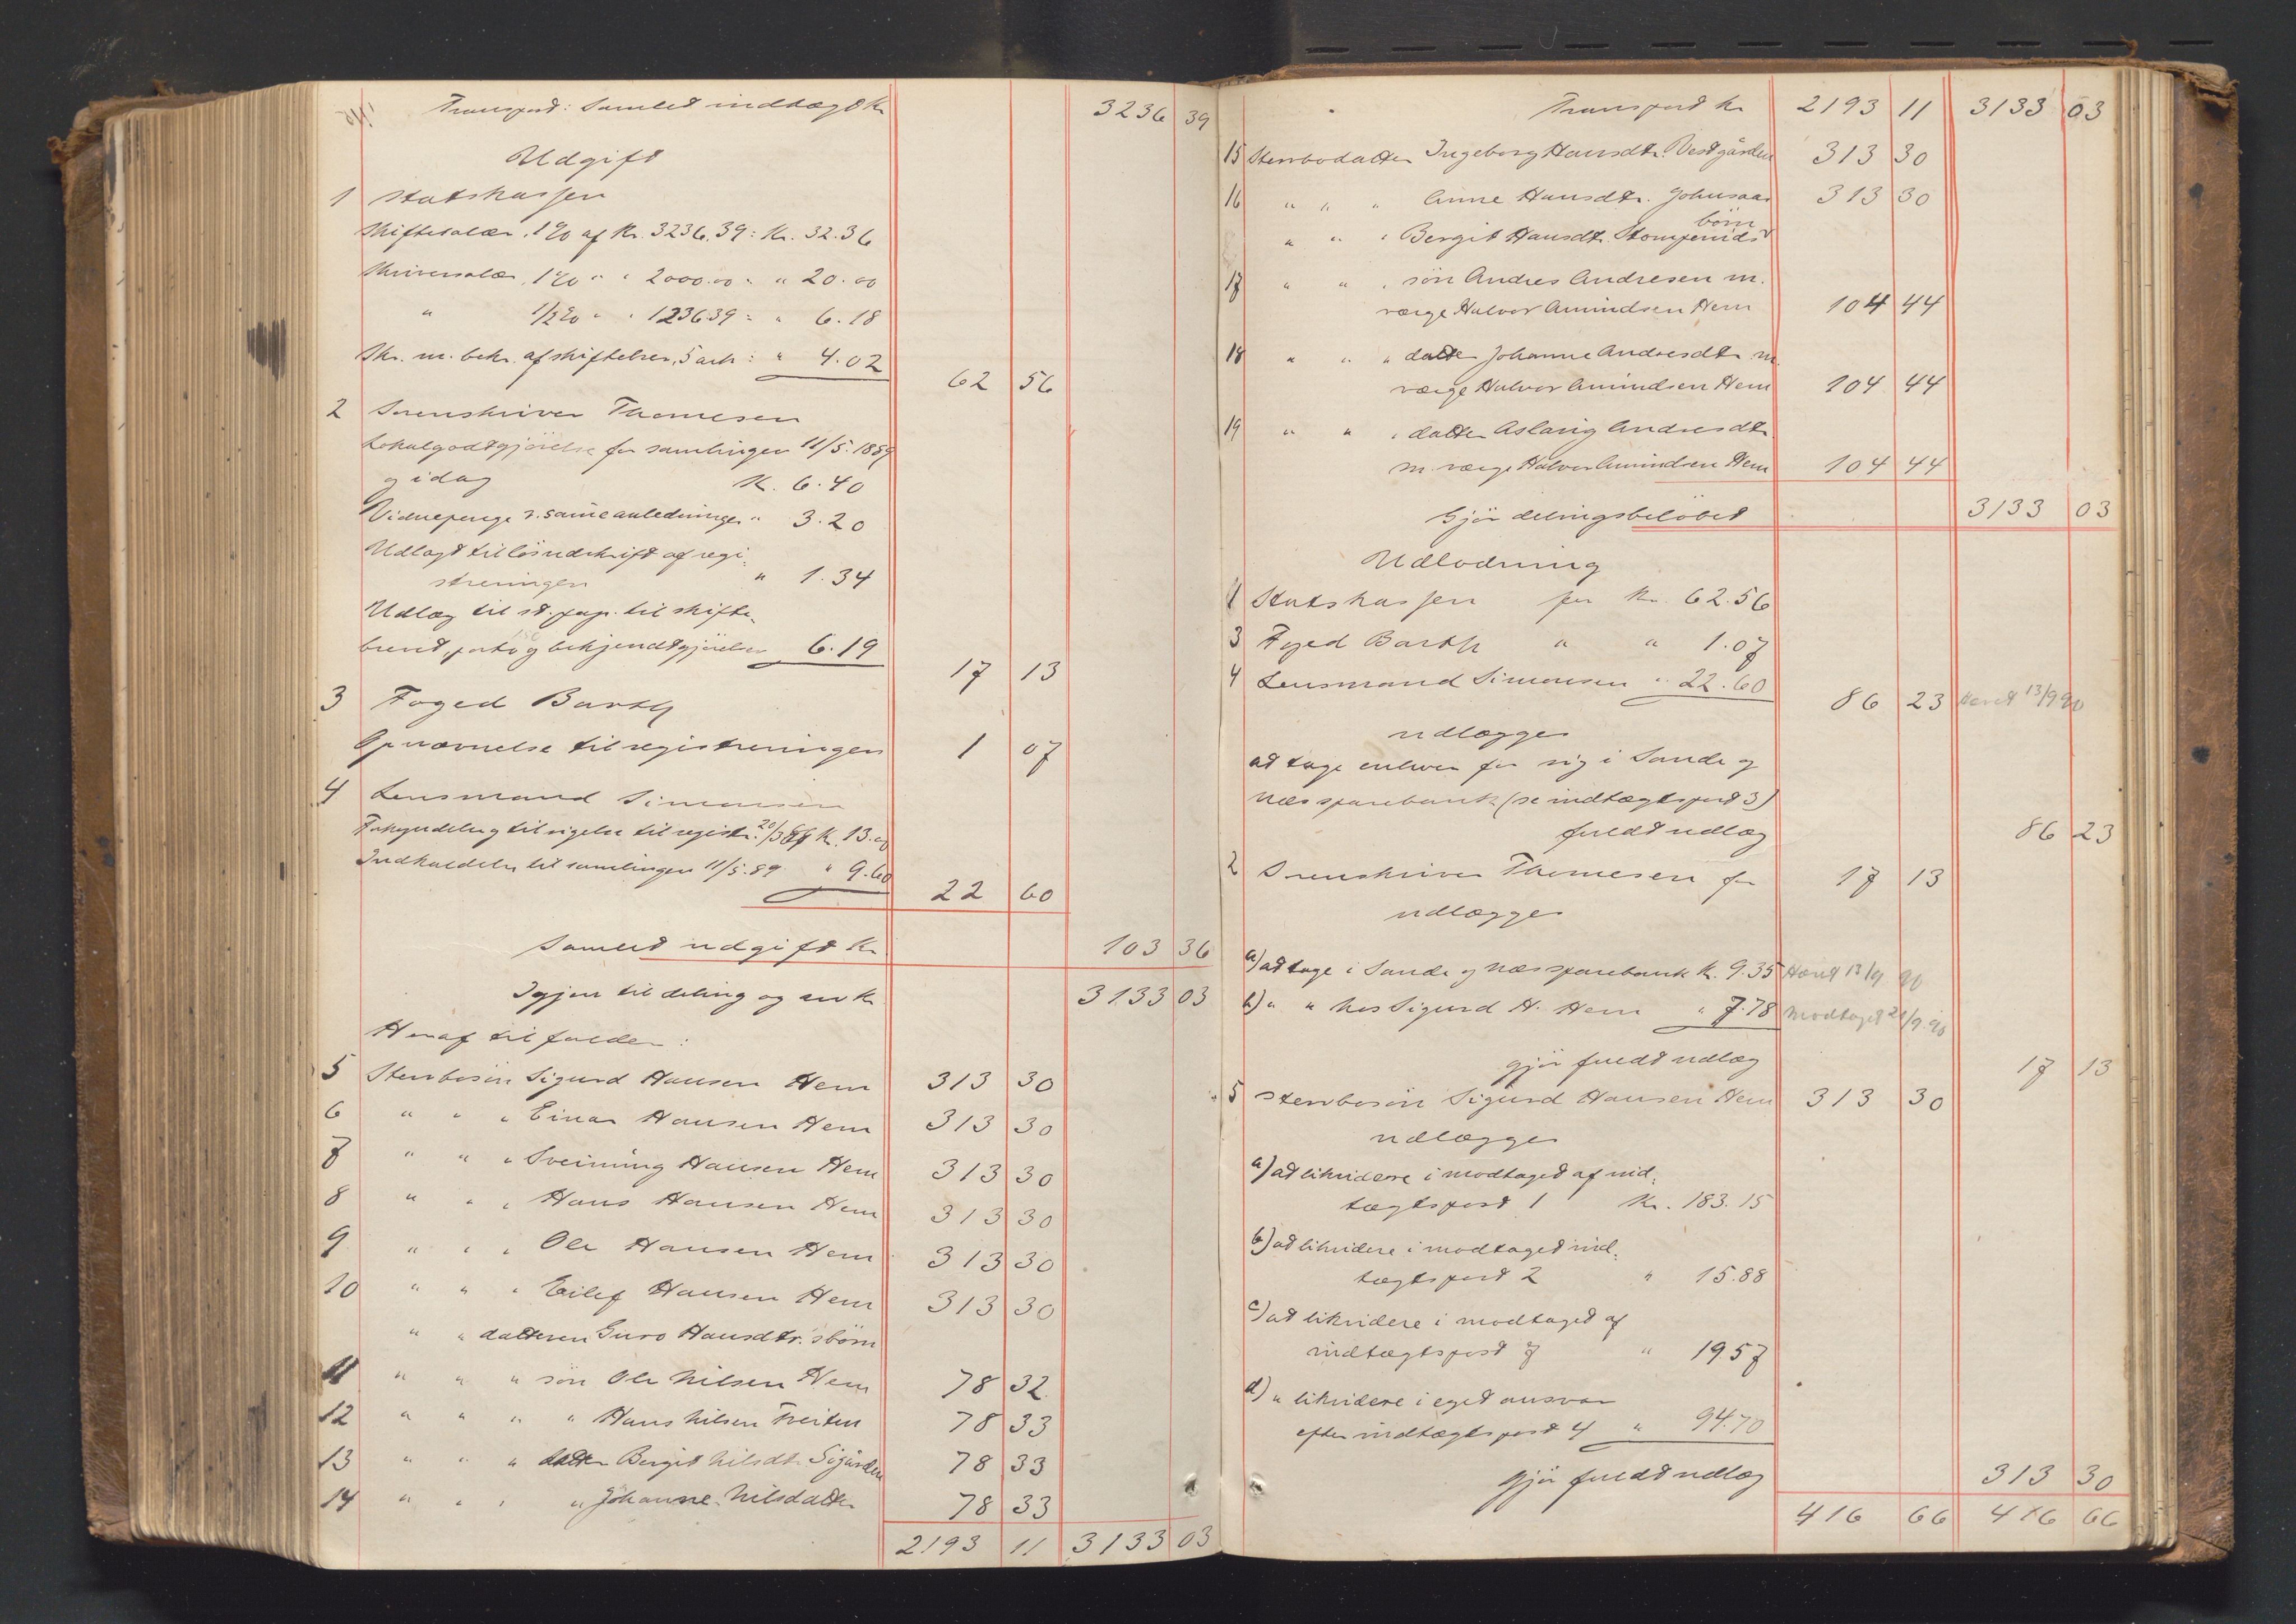 Transport: Samlet indtægt Kr 3236 39
Udgift
1 Statskassen
Skiftesalær, 1% af Kr. 3236.39: Kr. 32.36
Skriversalær, 1% " " 2000.00 : " 20.00
" 1/2% " " 1236.39 = " 6.18
Skr. m. bekr. af skiftebrev, 5 ark : " 4.02
62 56
2 Sorenskriver Thomesen
Lokalgodtgjörelse for samlingen 11/5. 1889
og idag K. 6.40
Vidnepenge v. samme anledninger " 3.20
Udlagt til løs udskrift af regi-
streringen " 1.34
Udlæg til st. pap. til skifte-
brevet, porto og bekjendtgjörelser 6.19
17 13
3 Foged Barth
Opnævnelse til registreringen 1 07
4 Lensmand Simonsen
Forkyndelse og tilsigelse til registr. 20/3 89 K. 13.00
Indkaldelse til samlingen 11/5.89 " 9.60
22 60
Samlet udgift Kr 103 36
Igjen til deling og arv Kr 3133 03
Heraf tilfalder:
5 Stervbosön Sigurd Hansen Hem 313 30
6 " " " Einar Hansen Hem 313 30
7 " " " Sveinung Hansen Hem 313 30
8 " " " Hans Hansen Hem 313 30
9 " " " Ole Hansen Hem 313 30
10 " " " Eilef Hansen Hem 313 30
" " datteren Guro Hansdtr.'s börn
11 " " " sön Ole Nilsen Hem 78 32
12 " " " " Hans Nilsen Treiten 78 33
13 " " " datter Bergit Nilsdtr. Sigården 78 33
14 " " " " Johanne Nilsdatter 78 33
2193 11 3133 03
Transport Kr 2193 11 3133 03
15 Stervbodatter Ingeborg Hansdtr. Vestgården 313 30
16 " " " Anne Hansdtr. Johnsaas 313 30
börn
" " " Bergit Hansdtr.
17 " " " sön Andres Andresen m.
værge Halvor Amundsen Hem 104 44
18 " " " datter Johanne Andresdtr. m.
værge Halvor Amundsen Hem 104 44
19 " " " datter Aslaug Andresdtr.
m. værge Halvor Amundsen Hem 104 44
Gjör delingsbelöbet 3133 03
Udlodning
1 Statskassen for Kr. 62.56
3 Foged Barth " " 1.07
4 Lensmand Simonsen " 22.60
86 23 Hævet 13/9 90
udlægges
at tage enhver for sig i Sande og
Næs sparebank (se indtægtspost 3)
fuldt udlæg 86 23
2 Sorenskriver Thomesen for 17 13
udlægges
a) at tage i Sande og Næs sparebank K. 9.35 Hævet 13/9 90
b) " " hos Sigurd H. Hem " 7.78 Modtaget 21/9.90
gjör fuldt udlæg 17 13
5 Stervbosön Sigurd Hansen Hem 313 30
udlægges
a) at likvidere i modtaget af ind-
tægtspost 1 Kr. 183.15
b) at likvidere i modtaget ind-
tægtspost 2 " 15.88
c) at likvidere i modtaget af
indtægtspost 7 " 19 57
d) " likvidere i eget ansvar
efter indtægtspost 4 " 94.70
gjör fuldt udlæg 313 30
416 66 416 66